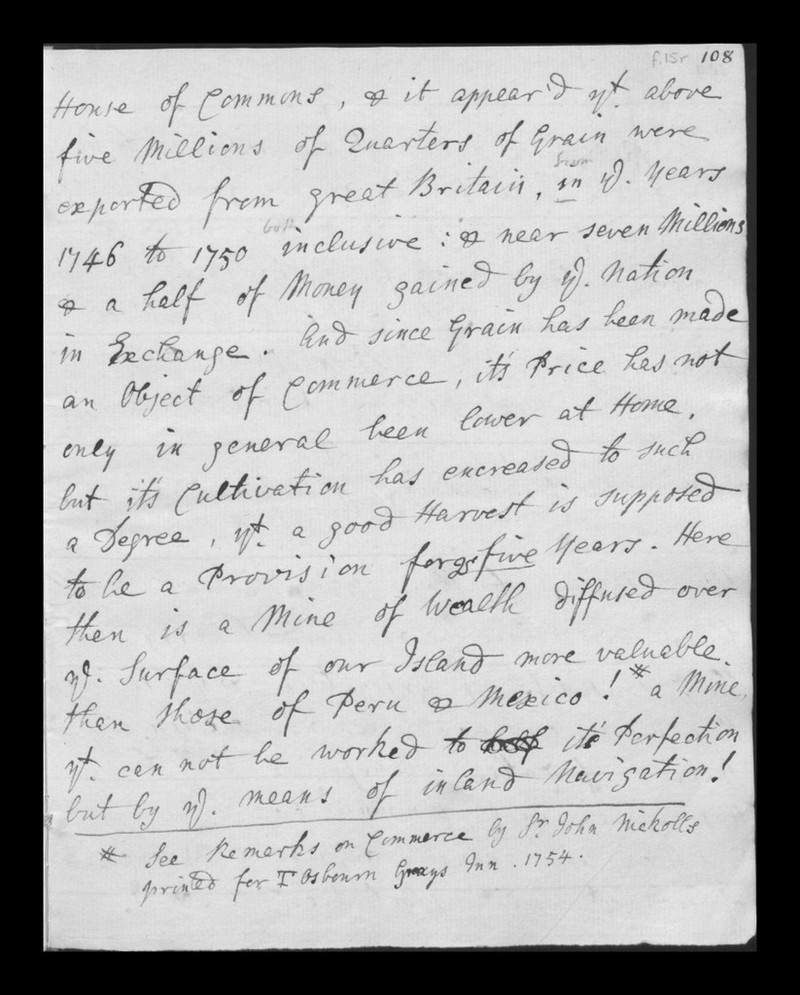 f.15r 108
House of Commons, & it appear'd yt. above
five Millions of Quarters of Grain were
from
exported from great Britain, in ye. Years
both
1746 to 1750 inclusive : & near seven Millions
& a half of Money gained by ye. Nation
in Exchange. And since Grain has been made
an Object of Commerce, it's Price has not
only in general been lower at Home,
but it's Cultivation has encreased to such
a Degree, yt. a good Harvest is supposed
to be a Provision for five Years. Here
then is a Mine of Wealth diffused over
ye. Surface of our Island more valuable
than those of Peru & Mexico!* a Mine,
yt. can not be worked to it's Perfection
but by ye. means of inland Navigation!
* See Remarks on Commerce by Sr. John Nickolls
printed for T Osbourn Grays Inn. 1754.